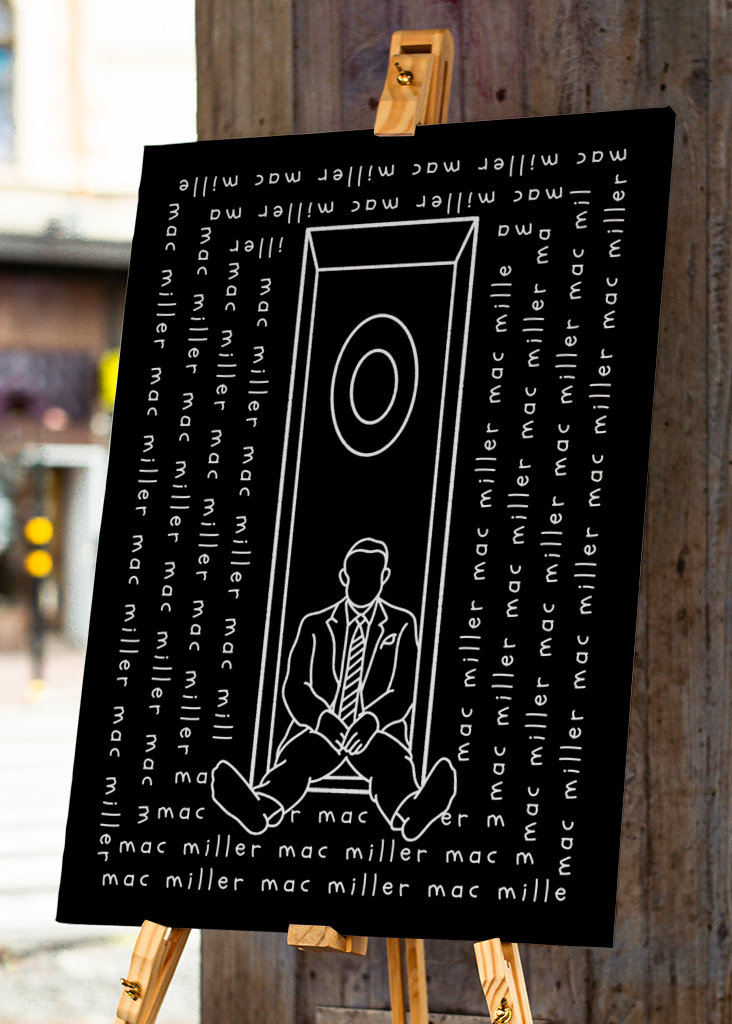 mac miller mac miller mac mille
mac miller mac miller ma
ma iller
mac miller mac miller mac miller mac miller
mac miller mac miller mac miller mac m
mac miller mac miller mac miller ma
mac miller mac miller mac mill
mac miller mac miller mac mille
mac miller mac miller mac miller ma
mac miller mac miller mac miller mac mil
mac miller mac miller mac miller mac miller
mac r mac er m
mac miller mac miller mac m
mac miller mac miller mac mille